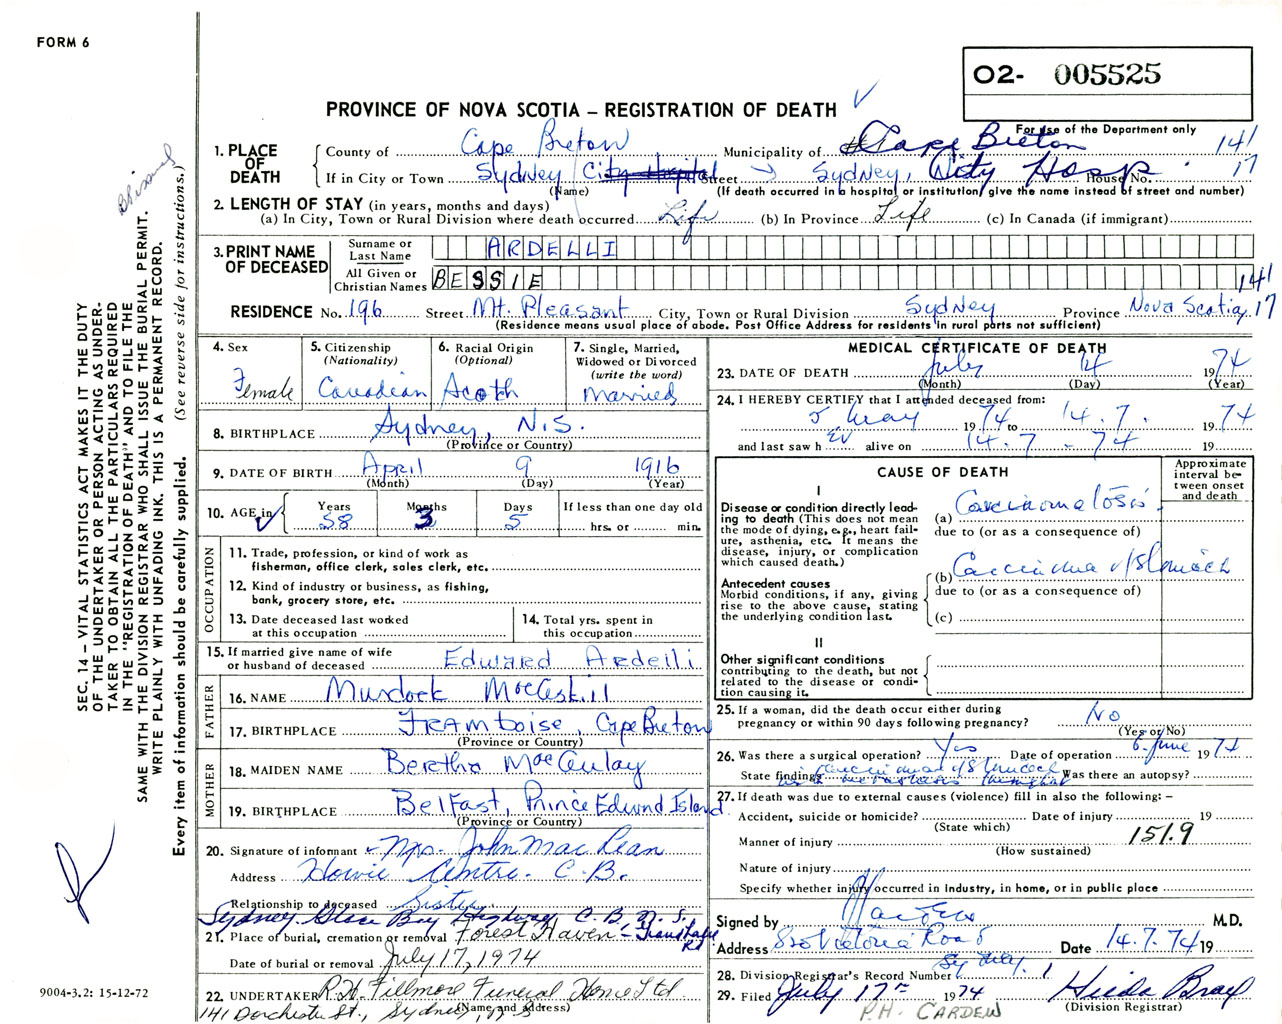 FORM 6
O2- 005525
PROVINCE OF NOVA SCOTIA – REGISTRATION OF DEATH
For Use of the Department only
1. PLACE OF DEATH
County of Cape Breton Municipality of Cape Breton 141
If in City or Town Sydney City Hospital Street Sydney, City Hosp House No. 17
(Name) (If death occurred in a hospital or institution, give the name instead of street and number)
2. LENGTH OF STAY (in years, months and days)
(a) In City, Town or Rural Division where death occurred Life (b) In Province Life (c) In Canada (if immigrant)
3. PRINT NAME OF DECEASED
Surname or Last Name ARDELLI
All Given or Christian Names BESSIE
141
RESIDENCE No. 196 Street Mt. Pleasant City, Town or Rural Division Sydney Province Nova Scotia 17
(Residence means usual place of abode. Post Office Address for residents in rural parts not sufficient)
4. Sex Female
5. Citizenship (Nationality) Canadian
6. Racial Origin (Optional) Scotch
7. Single, Married, Widowed or Divorced (write the word) Married
8. BIRTHPLACE Sydney, N.S.
(Province or Country)
9. DATE OF BIRTH April 9 1916
(Month) (Day) (Year)
10. AGE in Years 58 Months 3 Days 5 If less than one day old hrs. or min.
OCCUPATION
11. Trade, profession, or kind of work as fisherman, office clerk, sales clerk, etc.
12. Kind of industry or business, as fishing, bank, grocery store, etc.
13. Date deceased last worked at this occupation
14. Total yrs. spent in this occupation
15. If married give name of wife or husband of deceased Edward Ardelli
FATHER
16. NAME Murdock MacAskill
17. BIRTHPLACE Framboise, Cape Breton
(Province or Country)
MOTHER
18. MAIDEN NAME Beretha MacAulay
19. BIRTHPLACE Belfast, Prince Edward Island
(Province or Country)
20. Signature of informant Mrs. John MacLean
Address Howie Centre. C.B.
Relationship to deceased Sister
Sydney Glace Bay Highway C.B. N.S.
21. Place of burial, cremation or removal Forest Haven
Date of burial or removal July 17, 1974
22. UNDERTAKER R.H. Fillmore Funeral Home Ltd
(Name and address)
141 Dorchester St., Sydney, N.S
MEDICAL CERTIFICATE OF DEATH
23. DATE OF DEATH July 14 1974
(Month) (Day) (Year)
24. I HEREBY CERTIFY that I attended deceased from:
5 May 1974 to 14.7. 1974
and last saw h er alive on 14.7 - 74 19
CAUSE OF DEATH
Approximate interval between onset and death
I
Disease or condition directly leading to death (This does not mean the mode of dying, e.g., heart failure, asthenia, etc. It means the disease, injury, or complication which caused death.)
(a) Carcinomatosis
due to (or as a consequence of)
Antecedent causes
Morbid conditions, if any, giving rise to the above cause, stating the underlying condition last.
(b) Carcinoma of Stomach
due to (or as a consequence of)
(c)
II
Other significant conditions contributing to the death, but not related to the disease or condition causing it.
25. If a woman, did the death occur either during pregnancy or within 90 days following pregnancy? No
(Yes or No)
26. Was there a surgical operation? Yes Date of operation 6. June 1974
State findings Carcinoma of Stomach Was there an autopsy?
27. If death was due to external causes (violence) fill in also the following: –
Accident, suicide or homicide? Date of injury 19
(State which)
Manner of injury 151.9
(How sustained)
Nature of injury
Specify whether injury occurred in industry, in home, or in public place
Signed by M.D.
Address Victoria Road Date 14.7.74 19
Sydney.
28. Division Registrar's Record Number 1
29. Filed July 17th 1974 Hilda Bray
(Division Registrar)
P.H. CARDEW
SEC. 14 – VITAL STATISTICS ACT MAKES IT THE DUTY
OF THE UNDERTAKER OR PERSON ACTING AS UNDER-
TAKER TO OBTAIN ALL THE PARTICULARS REQUIRED
IN THE "REGISTRATION OF DEATH" AND TO FILE THE
SAME WITH THE DIVISION REGISTRAR WHO SHALL ISSUE THE BURIAL PERMIT.
WRITE PLAINLY WITH UNFADING INK. THIS IS A PERMANENT RECORD.
Every item of information should be carefully supplied. (See reverse side for instructions.)
9004-3.2: 15-12-72